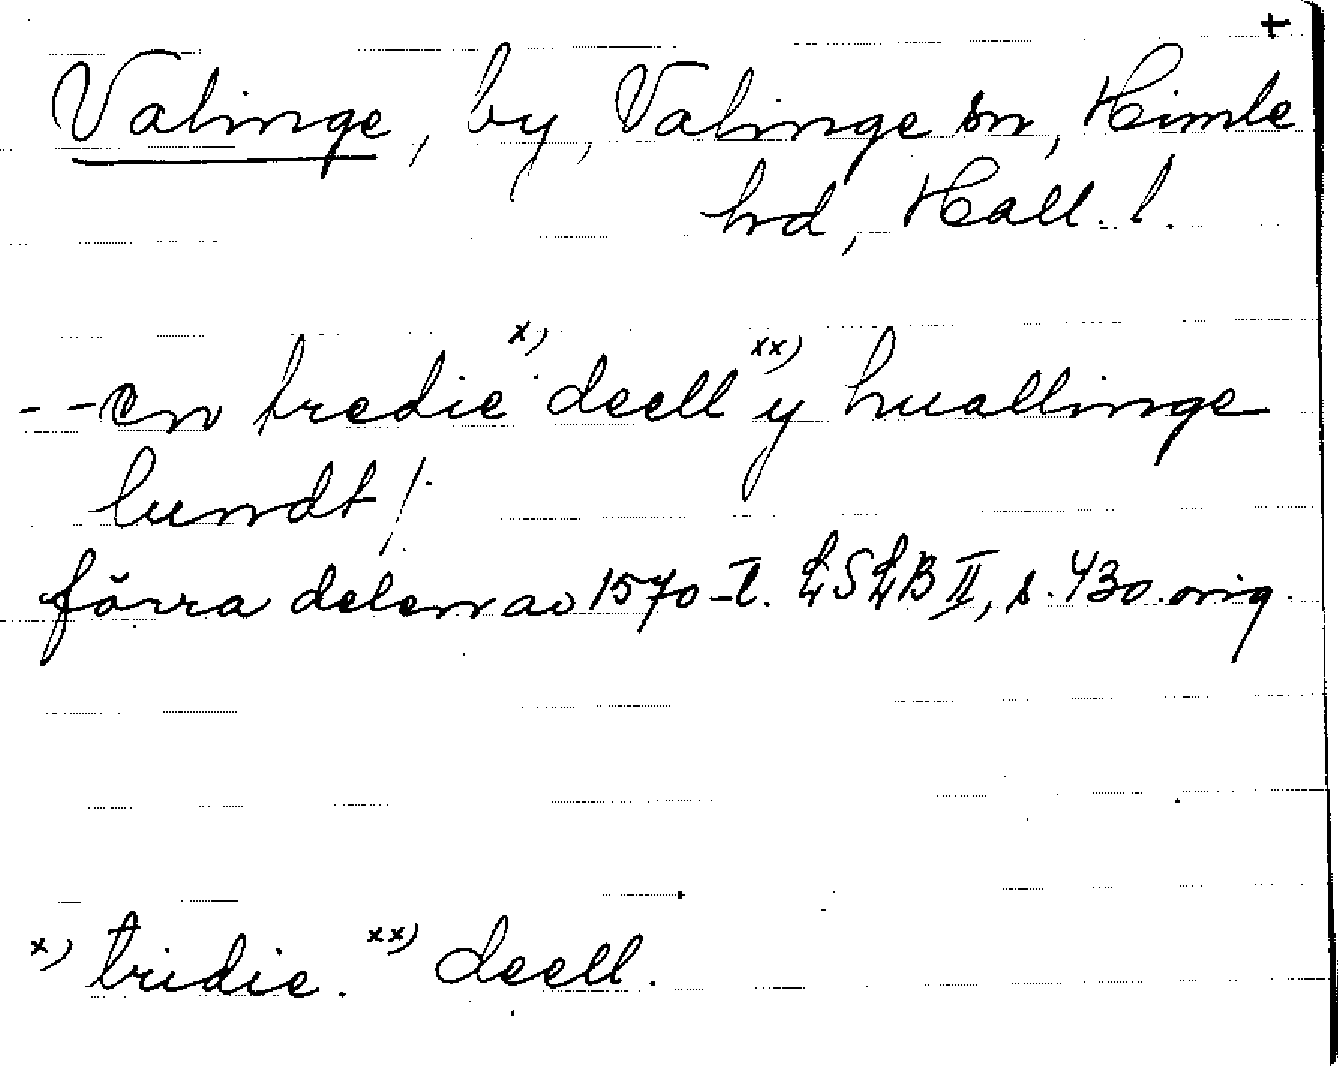 +
Valinge, by, Valinge sn, Himle
hrd, Hall. l.
- - en tredie x) deell xx) y huallinge
lundt /.
förra delen av 1570-t. LSLB II, s. 430. orig.
x) tridie. xx) deell.